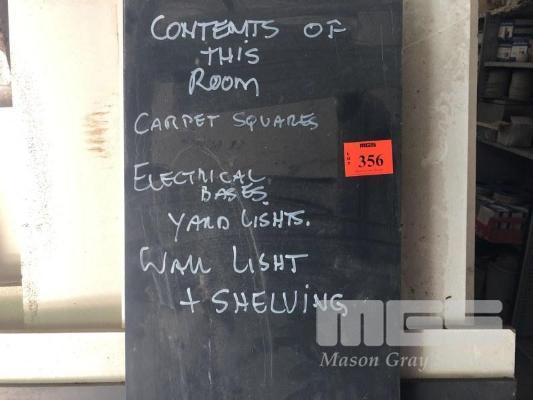 CONTENTS OF
THIS
ROOM
CARPET SQUARES
MGS
LOT 356
ELECTRICAL
BASES.
YARD LIGHTS.
WALL LIGHT
+ SHELVING
MGS
Mason Gray